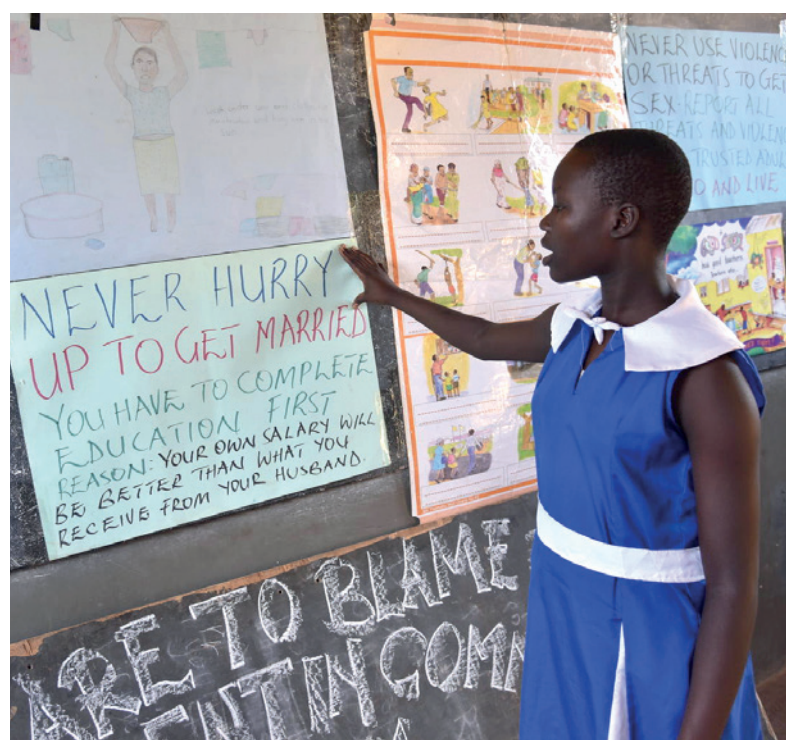 NEVER HURRY
UP TO GET MARRIED
YOU HAVE TO COMPLETE
EDUCATION FIRST
REASON: YOUR OWN SALARY WILL
BE BETTER THAN WHAT YOU
RECEIVE FROM YOUR HUSBAND.
NEVER USE VIOLENC
OR THREATS TO GET
SEX. REPORT ALL
THREATS AND VIOLEN
TRUSTED ADUL
AND LIVE
ARE TO BLAME
ENT IN COMM